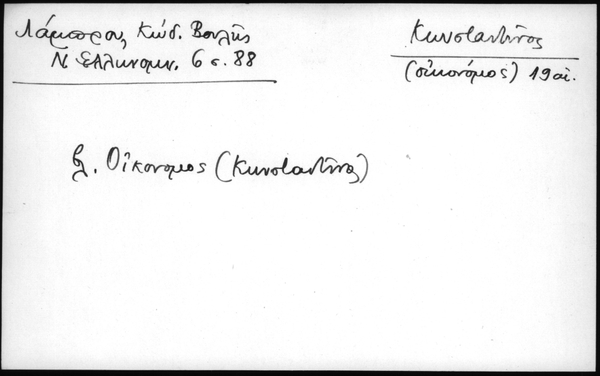 Λάμπρου, Κώδ. Βουλῆς
Ν. Ἑλληνομν. 6 σ. 88
Κωνσταντῖνος
(οἰκονόμος) 19 αἰ.
βλ. Οἰκονομος (Κωνσταντῖνος)